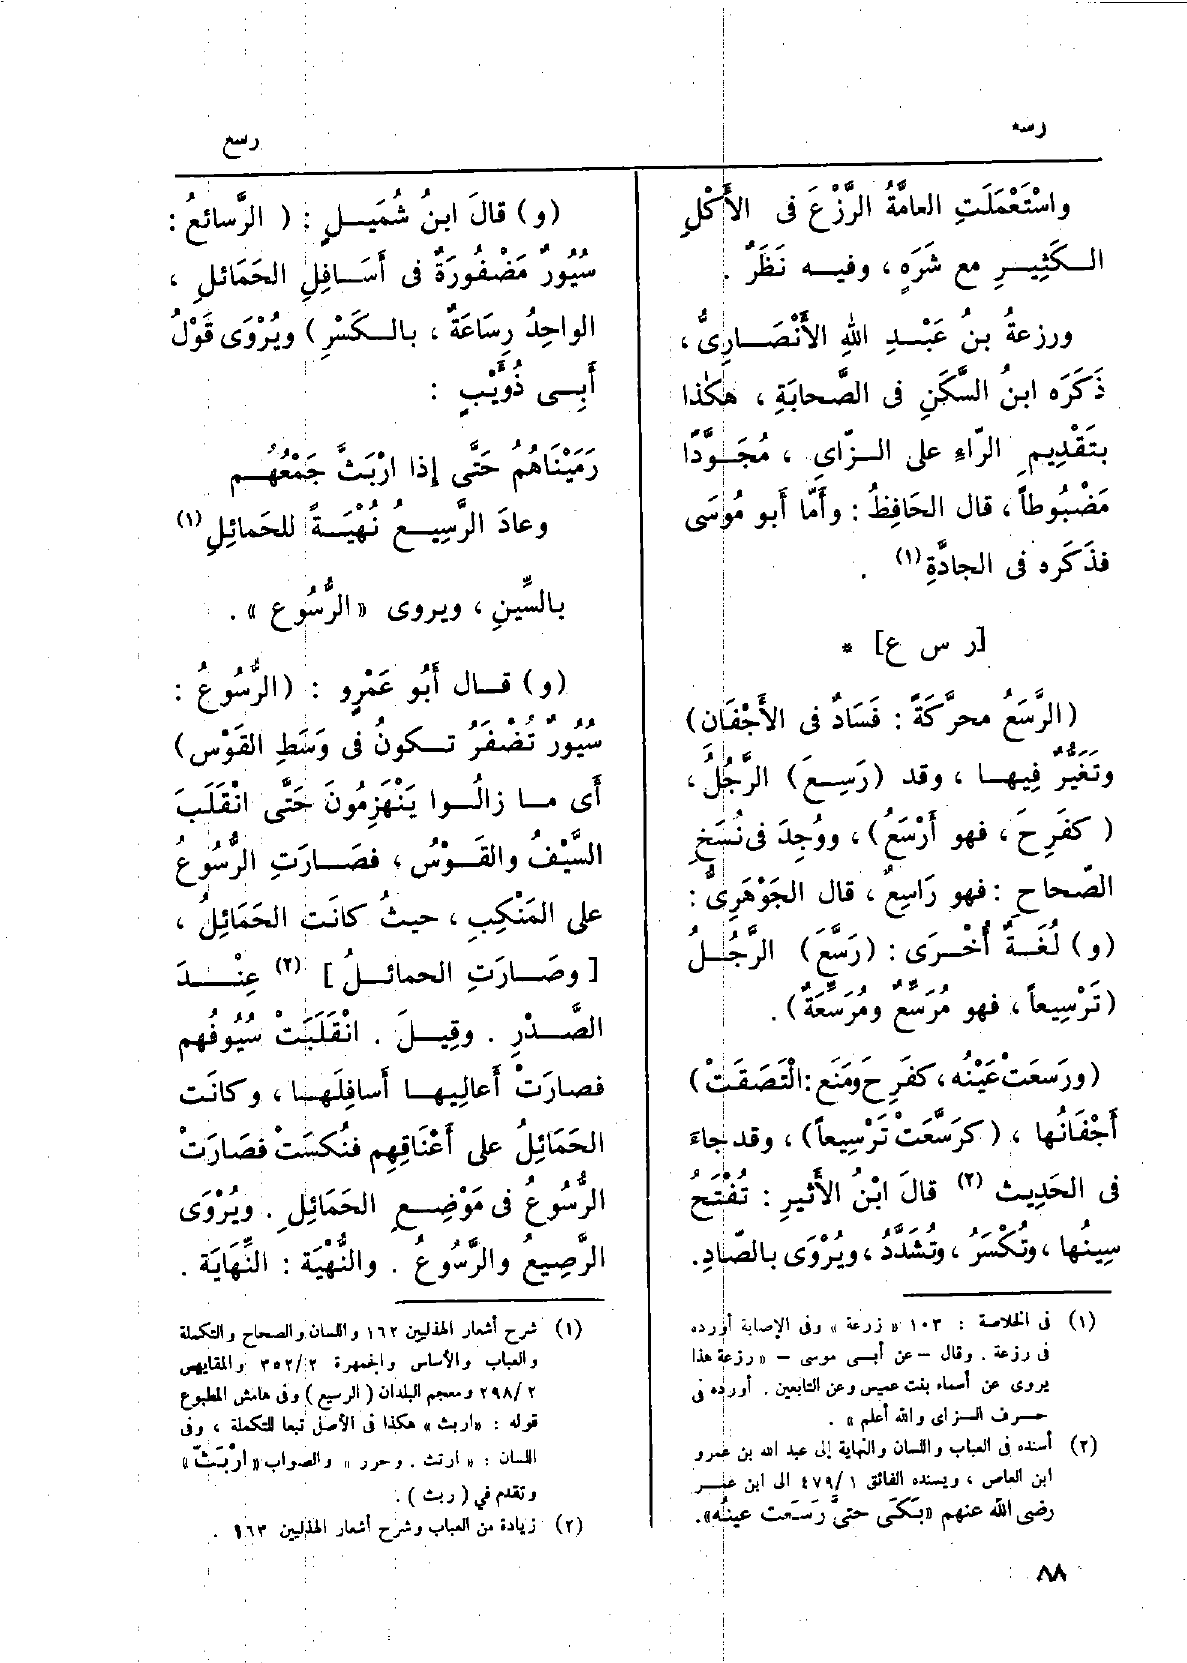 رسع
رسع
واسْتَعْمَلَتِ العامَّةُ الرَّزْعَ فى الأَكْلِ
الكَثِيرِ مع شَرَهٍ، وفيه نَظَرٌ.
ورزعةُ بنُ عَبْدِ اللهِ الأَنْصَارِىُّ،
ذَكَرَه ابنُ السَّكَنِ فى الصَّحابَةِ، هكَذا
بتَقْدِيمِ الرّاءِ على الزّاىِ، مُجَوَّدًا
مَضْبُوطاً، قال الحَافِظُ: وأَمّا أَبو مُوسَى
فذَكَره فى الجادَّةِ(١).
[ر س ع] *
(الرَّسَعُ محرَّكَةً: فَسَادٌ فى الأَجْفَان)
وتَغَيُّرٌ فِيها، وقد (رَسِعَ) الرَّجُلُ،
(كفَرِحَ، فهو أَرْسَعُ)، ووُجِدَ فى نُسَخِ
الصّحاحِ: فهو رَاسِعٌ، قال الجَوْهَرِىُّ:
(و) لُغَةٌ أُخْرَى: (رَسَّعَ) الرَّجُلُ
(تَرْسِيعاً، فهو مُرَسِّعٌ ومُرَسِّعَةٌ).
(ورَسعَتْ عَيْنُه، كفَرِحَ ومَنَع: الْتَصَقَتْ)
أَجْفَانُها، (كرَسَّعَتْ تَرْسِيعاً)، وقد جاءَ
فى الحَدِيث(٢) قالَ ابْنُ الأَثيرِ: تُفْتَحُ
سِينُها، وتُكْسَرُ، وتُشَدَّدُ، ويُرْوَى بالصّادِ.
(١) فى الخلاصة: ١٠٣ «زرعة» وفى الإصابة أورده
فى رزعة. وقال – عن أبى موسى – «رزعة هذا
يروى عن أسماء بنت عميس وعن التابعين. أورده فى
حرف الزاى والله أعلم».
(٢) أسنده فى العباب واللسان والنهاية إلى عبد الله بن عمرو
ابن العاص، ويسنده الفائق ١/٤٧٩ الى ابن عمر
رضى الله عنهم «بَكَى حتىَّ رَسَعَت عينُه».
(و) قالَ ابنُ شُمَيلٍ: (الرَّسائعُ:
سُيُورٌ مَضْفُورَةٌ فى أَسَافِلِ الحَمَائلِ،
الواحِدُ رِسَاعَةٌ، بالكَسْرِ) ويُرْوَى قَوْلُ
أَبِى ذُؤَيْبٍ:
رَمَيْنَاهُمُ حَتَّى إِذا ارْبَثَّ جَمْعُهُم
وعادَ الرَّسِيعُ نُهْيَةً للحَمائِلِ(١)
بالسِّينِ، ويروى «الرُّسُوع».
(و) قال أَبُو عَمْرٍو: (الرُّسُوعُ:
سُيُورٌ تُضْفَرُ تكونُ فى وَسَطِ القَوْس)
أَى ما زالُوا يَنْهَزِمُونَ حَتَّى انْقَلَبَ
السَّيْفُ والقَوْسُ، فصَارَتِ الرُّسُوعُ
على المَنْكِبِ، حيثُ كانَت الحَمَائِلُ،
[وصَارَتِ الحمائلُ](٢) عِنْدَ
الصَّدْرِ. وقِيلَ. انْقَلَبَتْ سُيُوفُهم
فصارَتْ أَعالِيها أَسافِلَها، وكانَت
الحَمَائِلُ على أَعْنَاقِهِم فنُكِسَتْ فصَارَتْ
الرُّسُوعُ فى مَوْضِعِ الحَمَائِلِ. ويُرْوَى
الرَّصِيعُ والرُّسُوعُ. والنُّهْيَة: النِّهَايَة.
(١) شرح أشعار الهذليين ١٦٢ واللسان والصحاح والتكملة
والعباب والأساس والجمهرة ٢/٣٥٢ والمقاييس
٢/٢٩٨ ومعجم البلدان (الرسيع) وفى هامش المطبوع
قوله: «اربث» هكذا فى الأصل تبعا للتكملة، وفى
اللسان: «ارتث. وحرر» والصواب «ارْبَثَّ»
وتقدم في (ربث).
(٢) زيادة من العباب وشرح أشعار الهذليين ١٦٣.
٨٨